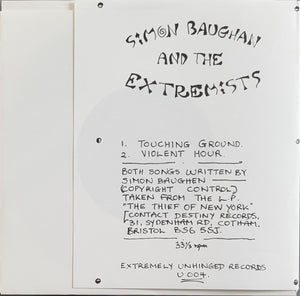 SIMON BAUGHAN
AND THE
EXTREMISTS
1. TOUCHING GROUND.
2. VIOLENT HOUR.
BOTH SONGS WRITTEN BY
SIMON BAUGHEN
(COPYRIGHT CONTROL)
TAKEN FROM THE L.P.
"THE THIEF OF NEW YORK"
[CONTACT DESTINY RECORDS,
31, SYDENHAM RD, COTHAM,
BRISTOL BS6 5SJ.
33⅓ rpm
EXTREMELY UNHINGED RECORDS
U 004.